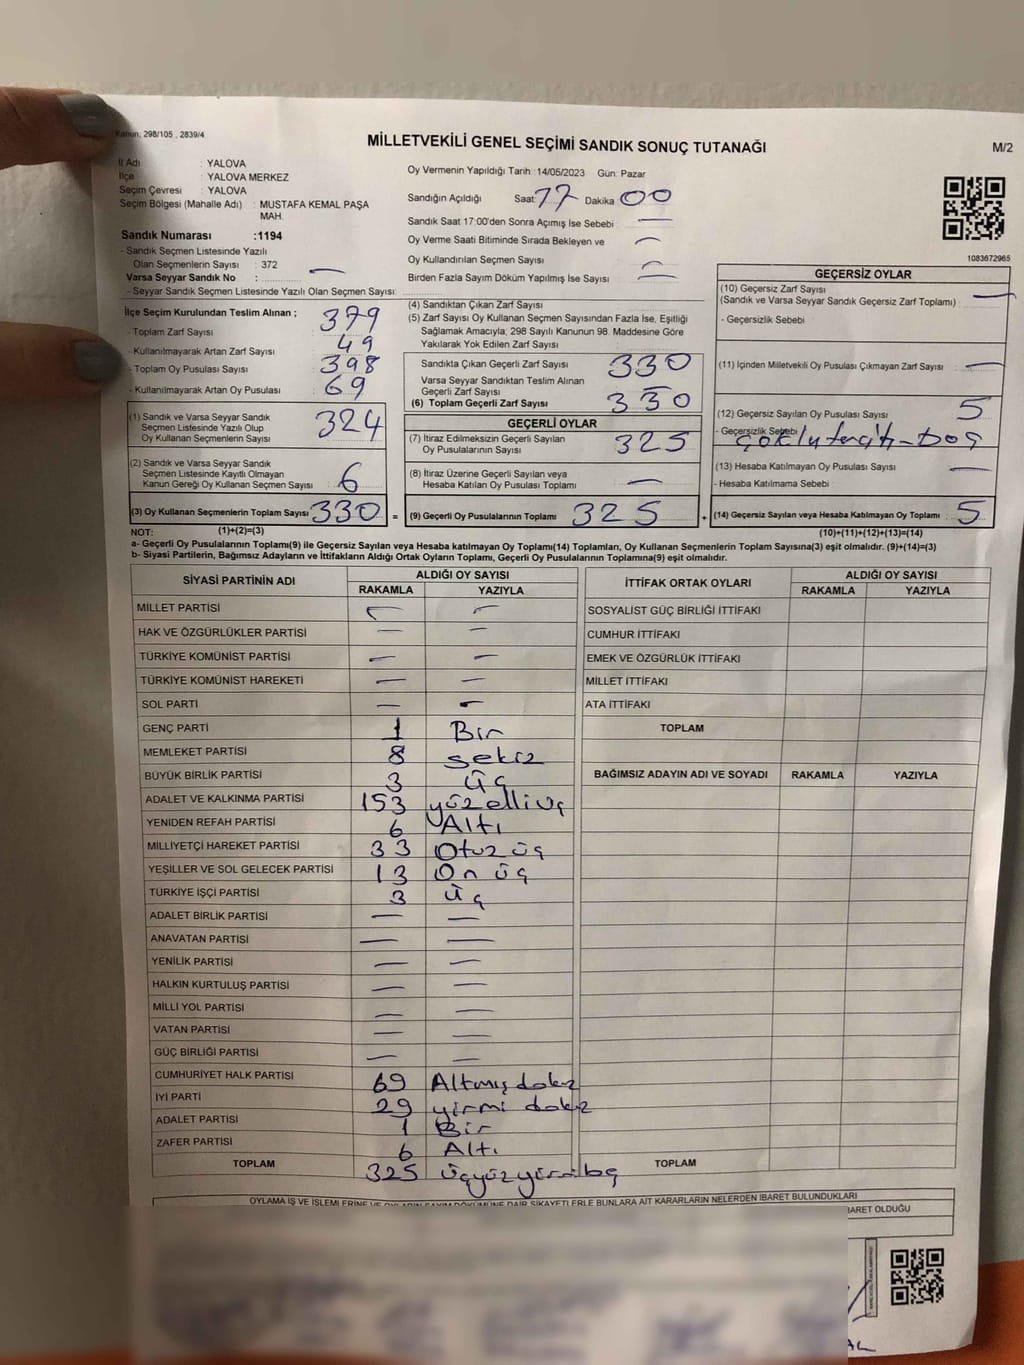 Kanun; 298/105 , 2839/4
MİLLETVEKİLİ GENEL SEÇİMİ SANDIK SONUÇ TUTANAĞI
M/2
İl Adı : YALOVA
İlçe : YALOVA MERKEZ
Seçim Çevresi : YALOVA
Seçim Bölgesi (Mahalle Adı) : MUSTAFA KEMAL PAŞA MAH.
Sandık Numarası :1194
- Sandık Seçmen Listesinde Yazılı
Olan Seçmenlerin Sayısı : 372
Varsa Seyyar Sandık No : —
- Seyyar Sandık Seçmen Listesinde Yazılı Olan Seçmen Sayısı:
Oy Vermenin Yapıldığı Tarih :14/05/2023 Gün: Pazar
Sandığın Açıldığı Saat 17 Dakika 00
Sandık Saat 17:00'den Sonra Açımış İse Sebebi —
Oy Verme Saati Bitiminde Sırada Bekleyen ve
Oy Kullandırılan Seçmen Sayısı —
Birden Fazla Sayım Döküm Yapılmış İse Sayısı —
1083672965
İlçe Seçim Kurulundan Teslim Alınan ;
- Toplam Zarf Sayısı 379
- Kullanılmayarak Artan Zarf Sayısı 49
- Toplam Oy Pusulası Sayısı 398
- Kullanılmayarak Artan Oy Pusulası 69
(1) Sandık ve Varsa Seyyar Sandık
Seçmen Listesinde Yazılı Olup
Oy Kullanan Seçmenlerin Sayısı : 324
(2) Sandık ve Varsa Seyyar Sandık
Seçmen Listesinde Kayıtlı Olmayan
Kanun Gereği Oy Kullanan Seçmen Sayısı : 6
(3) Oy Kullanan Seçmenlerin Toplam Sayısı : 330
(4) Sandıktan Çıkan Zarf Sayısı
(5) Zarf Sayısı Oy Kullanan Seçmen Sayısından Fazla İse, Eşitliği
Sağlamak Amacıyla; 298 Sayılı Kanunun 98. Maddesine Göre
Yakılarak Yok Edilen Zarf Sayısı :
Sandıkta Çıkan Geçerli Zarf Sayısı 330
Varsa Seyyar Sandıktan Teslim Alınan
Geçerli Zarf Sayısı
(6) Toplam Geçerli Zarf Sayısı 330
GEÇERLİ OYLAR
(7) İtiraz Edilmeksizin Geçerli Sayılan
Oy Pusulalarının Sayısı : 325
(8) İtiraz Üzerine Geçerli Sayılan veya
Hesaba Katılan Oy Pusulası Toplamı : —
= (9) Geçerli Oy Pusulalarının Toplamı : 325
GEÇERSİZ OYLAR
(10) Geçersiz Zarf Sayısı
(Sandık ve Varsa Seyyar Sandık Geçersiz Zarf Toplamı) : —
- Geçersizlik Sebebi :
(11) İçinden Milletvekili Oy Pusulası Çıkmayan Zarf Sayısı : —
(12) Geçersiz Sayılan Oy Pusulası Sayısı : 5
- Geçersizlik Sebebi
(13) Hesaba Katılmayan Oy Pusulası Sayısı : —
- Hesaba Katılmama Sebebi :
+ (14) Geçersiz Sayılan veya Hesaba Katılmayan Oy Toplamı : 5
NOT: (1)+(2)=(3) (10)+(11)+(12)+(13)=(14)
a- Geçerli Oy Pusulalarının Toplamı(9) ile Geçersiz Sayılan veya Hesaba katılmayan Oy Toplamı(14) Toplamları, Oy Kullanan Seçmenlerin Toplam Sayısına(3) eşit olmalıdır. (9)+(14)=(3)
b- Siyasi Partilerin, Bağımsız Adayların ve İttifakların Aldığı Ortak Oyların Toplamı, Geçerli Oy Pusulalarının Toplamına(9) eşit olmalıdır.
SİYASİ PARTİNİN ADI ALDIĞI OY SAYISI
RAKAMLA YAZIYLA
MİLLET PARTİSİ — —
HAK VE ÖZGÜRLÜKLER PARTİSİ — —
TÜRKİYE KOMÜNİST PARTİSİ — —
TÜRKİYE KOMÜNİST HAREKETİ — —
SOL PARTİ — —
GENÇ PARTİ 1 Bir
MEMLEKET PARTİSİ 8 sekiz
BÜYÜK BİRLİK PARTİSİ 3 Üç
ADALET VE KALKINMA PARTİSİ 153 yüzelliüç
YENİDEN REFAH PARTİSİ 6 Altı
MİLLİYETÇİ HAREKET PARTİSİ 33 Otuz üç
YEŞİLLER VE SOL GELECEK PARTİSİ 13 On üç
TÜRKİYE İŞÇİ PARTİSİ 3 Üç
ADALET BİRLİK PARTİSİ — —
ANAVATAN PARTİSİ — —
YENİLİK PARTİSİ — —
HALKIN KURTULUŞ PARTİSİ — —
MİLLİ YOL PARTİSİ — —
VATAN PARTİSİ — —
GÜÇ BİRLİĞİ PARTİSİ — —
CUMHURİYET HALK PARTİSİ 69 Altmış dokuz
İYİ PARTİ 29 yirmi dokuz
ADALET PARTİSİ 1 Bir
ZAFER PARTİSİ 6 Altı
TOPLAM 325 üçyüzyirmibeş
İTTİFAK ORTAK OYLARI ALDIĞI OY SAYISI
RAKAMLA YAZIYLA
SOSYALİST GÜÇ BİRLİĞİ İTTİFAKI
CUMHUR İTTİFAKI
EMEK VE ÖZGÜRLÜK İTTİFAKI
MİLLET İTTİFAKI
ATA İTTİFAKI
TOPLAM
BAĞIMSIZ ADAYIN ADI VE SOYADI RAKAMLA YAZIYLA
TOPLAM
OYLAMA İŞ VE İŞLEMLERİNE VE OYLARIN SAYIM DÖKÜMÜNE DAİR ŞİKAYETLERLE BUNLARA AİT KARARLARIN NELERDEN İBARET BULUNDUKLARI
BARET OLDUĞU